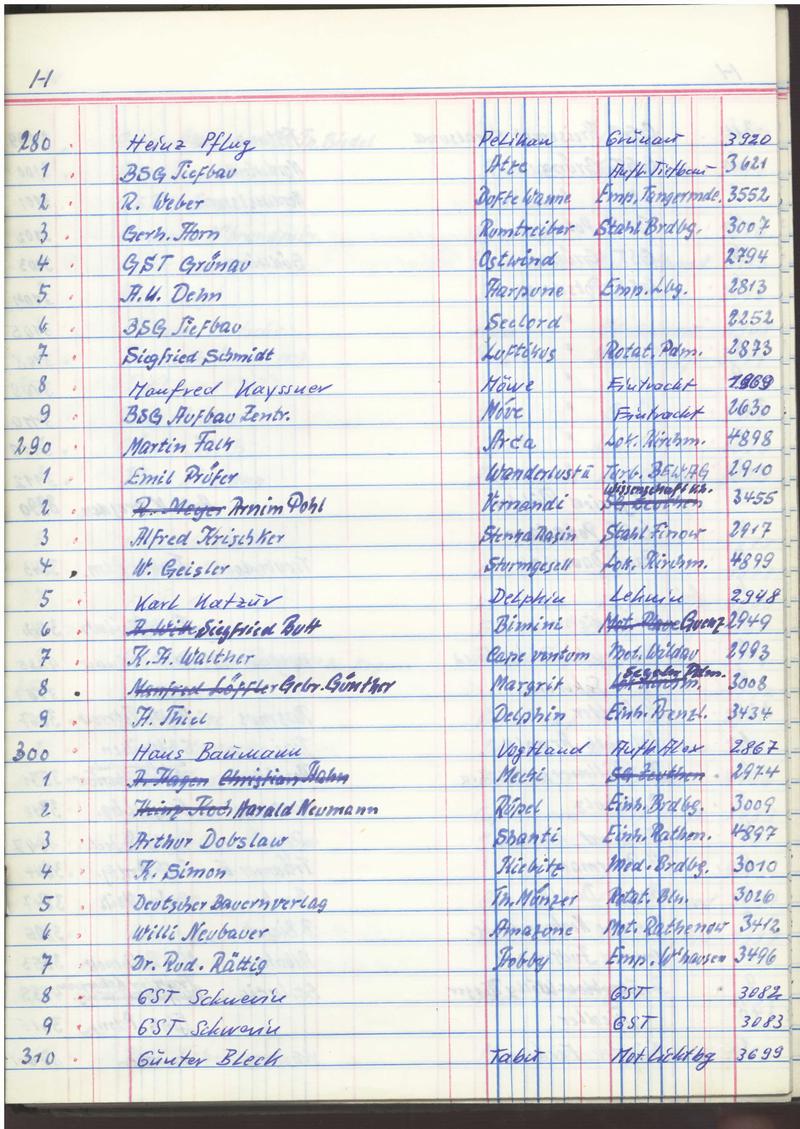 H
280 Heinz Pflug Pelikan Grünau 3920
1 BSG Tiefbau Atze Aufb. Tiefbau 3621
2 R. Weber Dufte Wanne Emp. Tangermde. 3552
3 Gerh. Horn Rumtreiber Stahl Brdbg. 3007
4 GST Grünau Ostwind 2794
5 H.U. Dehn Harpune Emp. Lbg. 2813
6 BSG Tiefbau Seelord 2252
7 Siegfried Schmidt Luftikus Rotat. Pdm. 2873
8 Manfred Kayssner Möwe Eintracht 1969
9 BSG Aufbau Zentr. Möve Eintracht 2630
290 Martin Falk Arca Lok. Kirchm. 4898
1 Emil Prüfer Wanderlust II Turb. BEWAG 2910
2 R. Meyer Arnim Pohl Vernandi SG Zeuthen Wissenschaft 3455
3 Alfred Krischker Stenka Rasin Stahl Finow 2917
4 W. Geisler Sturmgesell Lok. Kirchm. 4899
5 Karl Katzur Delphin Lehnin 2948
6 R. Witt Siegfried Butt Bimini Mot. Guenz 2949
7 K.H. Walther Cape ventum Mot. Wildau 2993
8 Manfred Löffler Gebr. Günther Margrit Segeln Pdm. 3008
9 H. Thiel Delphin Einh. Prenzl. 3434
300 Hans Baumann Vogtland Aufb. Alex 2867
1 R. Hagen Christian Hahn Mecki SG Zeuthen 2974
2 Heinz Koch Harald Neumann Rüpel Einh. Brdbg. 3009
3 Arthur Dobslaw Shanti Einh. Rathen. 4897
4 K. Simon Kiebitz Med. Brdbg. 3010
5 Deutscher Bauernverlag Th. Münzer Rotat. Bln. 3026
6 Willi Neubauer Amazone Mot. Rathenow 3412
7 Dr. Rud. Rättig Hobby Emp. W'hausen 3496
8 GST Schwerin GST 3082
9 GST Schwerin GST 3083
310 Günter Bleck Tabu Mot Lichtbg 3699